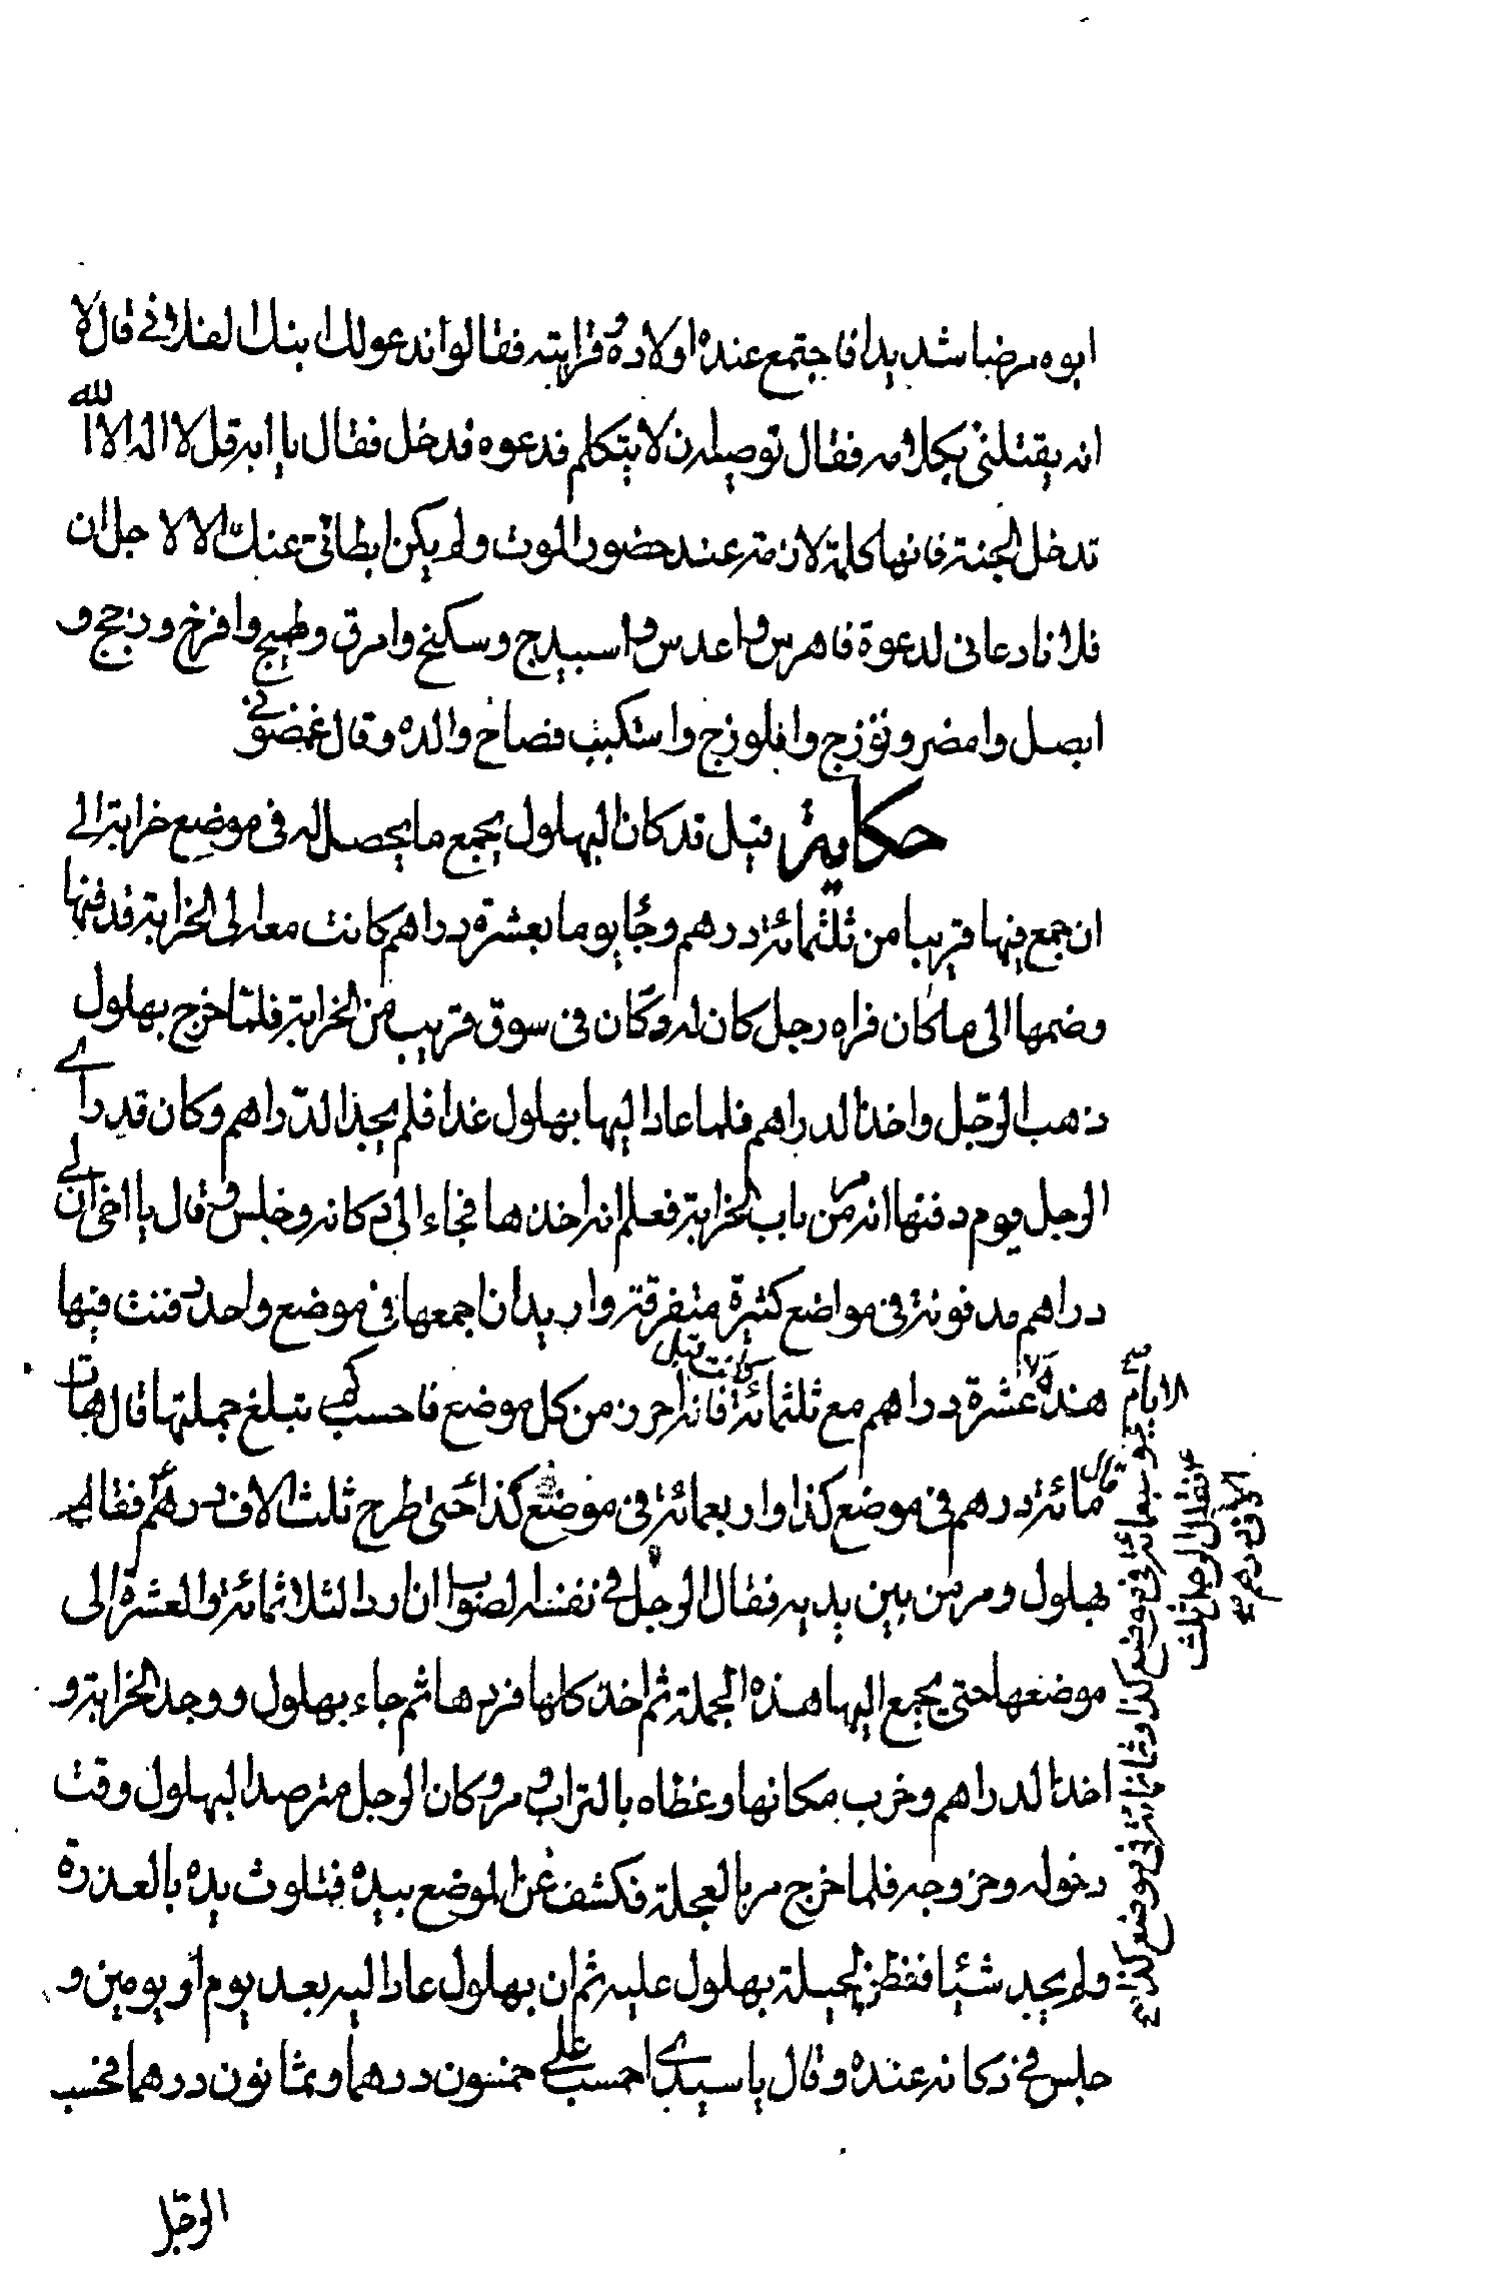 ابوه مرضا شديدا فاجتمع عنده اولاده وقرابته فقالوا ندعو لك ابنك الفلانى قال لا
انه يقتلنى بكلامه فقال نوصيه ان لا يتكلم فدعوه فدخل فقال يا ابه قل لا اله الا الله
تدخل الجنة فانها كلمة لازمة عند حضور الموت ولم يكن ابطائى عنك الا لاجل ان
فلانا دعانى لدعوة فاهرس واعدس واسبيدج وسكنج وامرق وطبهج وافرخ ودجج و
ابصل وامضر ولوزج وافلوزج واستكبب فصاح والده وقال غمضونى
حكاية قيل قد كان البهلول يجمع ما يحصل له فى موضع خرابة الى
ان جمع فيها قريبا من ثلثمائة درهم وجاء يوما بعشرة دراهم كانت معه الى الخرابة فدفنها
وضمها الى ما كان فراه رجل كان له دكان فى سوق قريب من الخرابة فلما خرج بهلول
ذهب الرجل واخذ الدراهم فلما عاد اليها بهلول غدا فلم يجد الدراهم وكان قد راى
الرجل يوم دفنها انه مر من باب الخرابة فعلم انه اخذها فجاء الى دكانه وجلس وقال يا اخى ان لى
دراهم مدفونة فى مواضع كثيرة متفرقة واريد ان اجمعها فى موضع واحد دفنت فيها
هذه الايام عشرة دراهم مع ثلثمائة كانت قبل فانه احرز من كل موضع فاحسب كم تبلغ جملتها قال هات
قال مائة درهم فى موضع كذا واربعمائة فى موضع كذا حتى طرح ثلث الاف درهم فقام
بهلول ومر من بين يديه فقال الرجل فى نفسه الصواب ان ارد الثلاثمائة والعشرة الى
موضعها حتى يجمع اليها هذه الجملة ثم اخذ كلها فردها ثم جاء بهلول ووجد الخرابة و
اخذ الدراهم وخرب مكانها وغطاه بالتراب ومر وكان الرجل مترصدا لبهلول وقت
دخوله وخروجه فلما خرج مر بالعجلة فكشف عن الموضع بيده فتلوث يده بالعذرة
ولم يجد شيئا ففطن لحيلة بهلول عليه ثم ان بهلول عاد اليه بعد يوم او يومين و
جلس فى دكانه عنده وقال يا سيدى احسب على خمسون درهما وثمانون درهما فحسب
الرجل
الايام
وسبعمائة فى موضع كذا وثمانمائة فى موضع كذا
فقال الرجل ثلث
الاف درهم